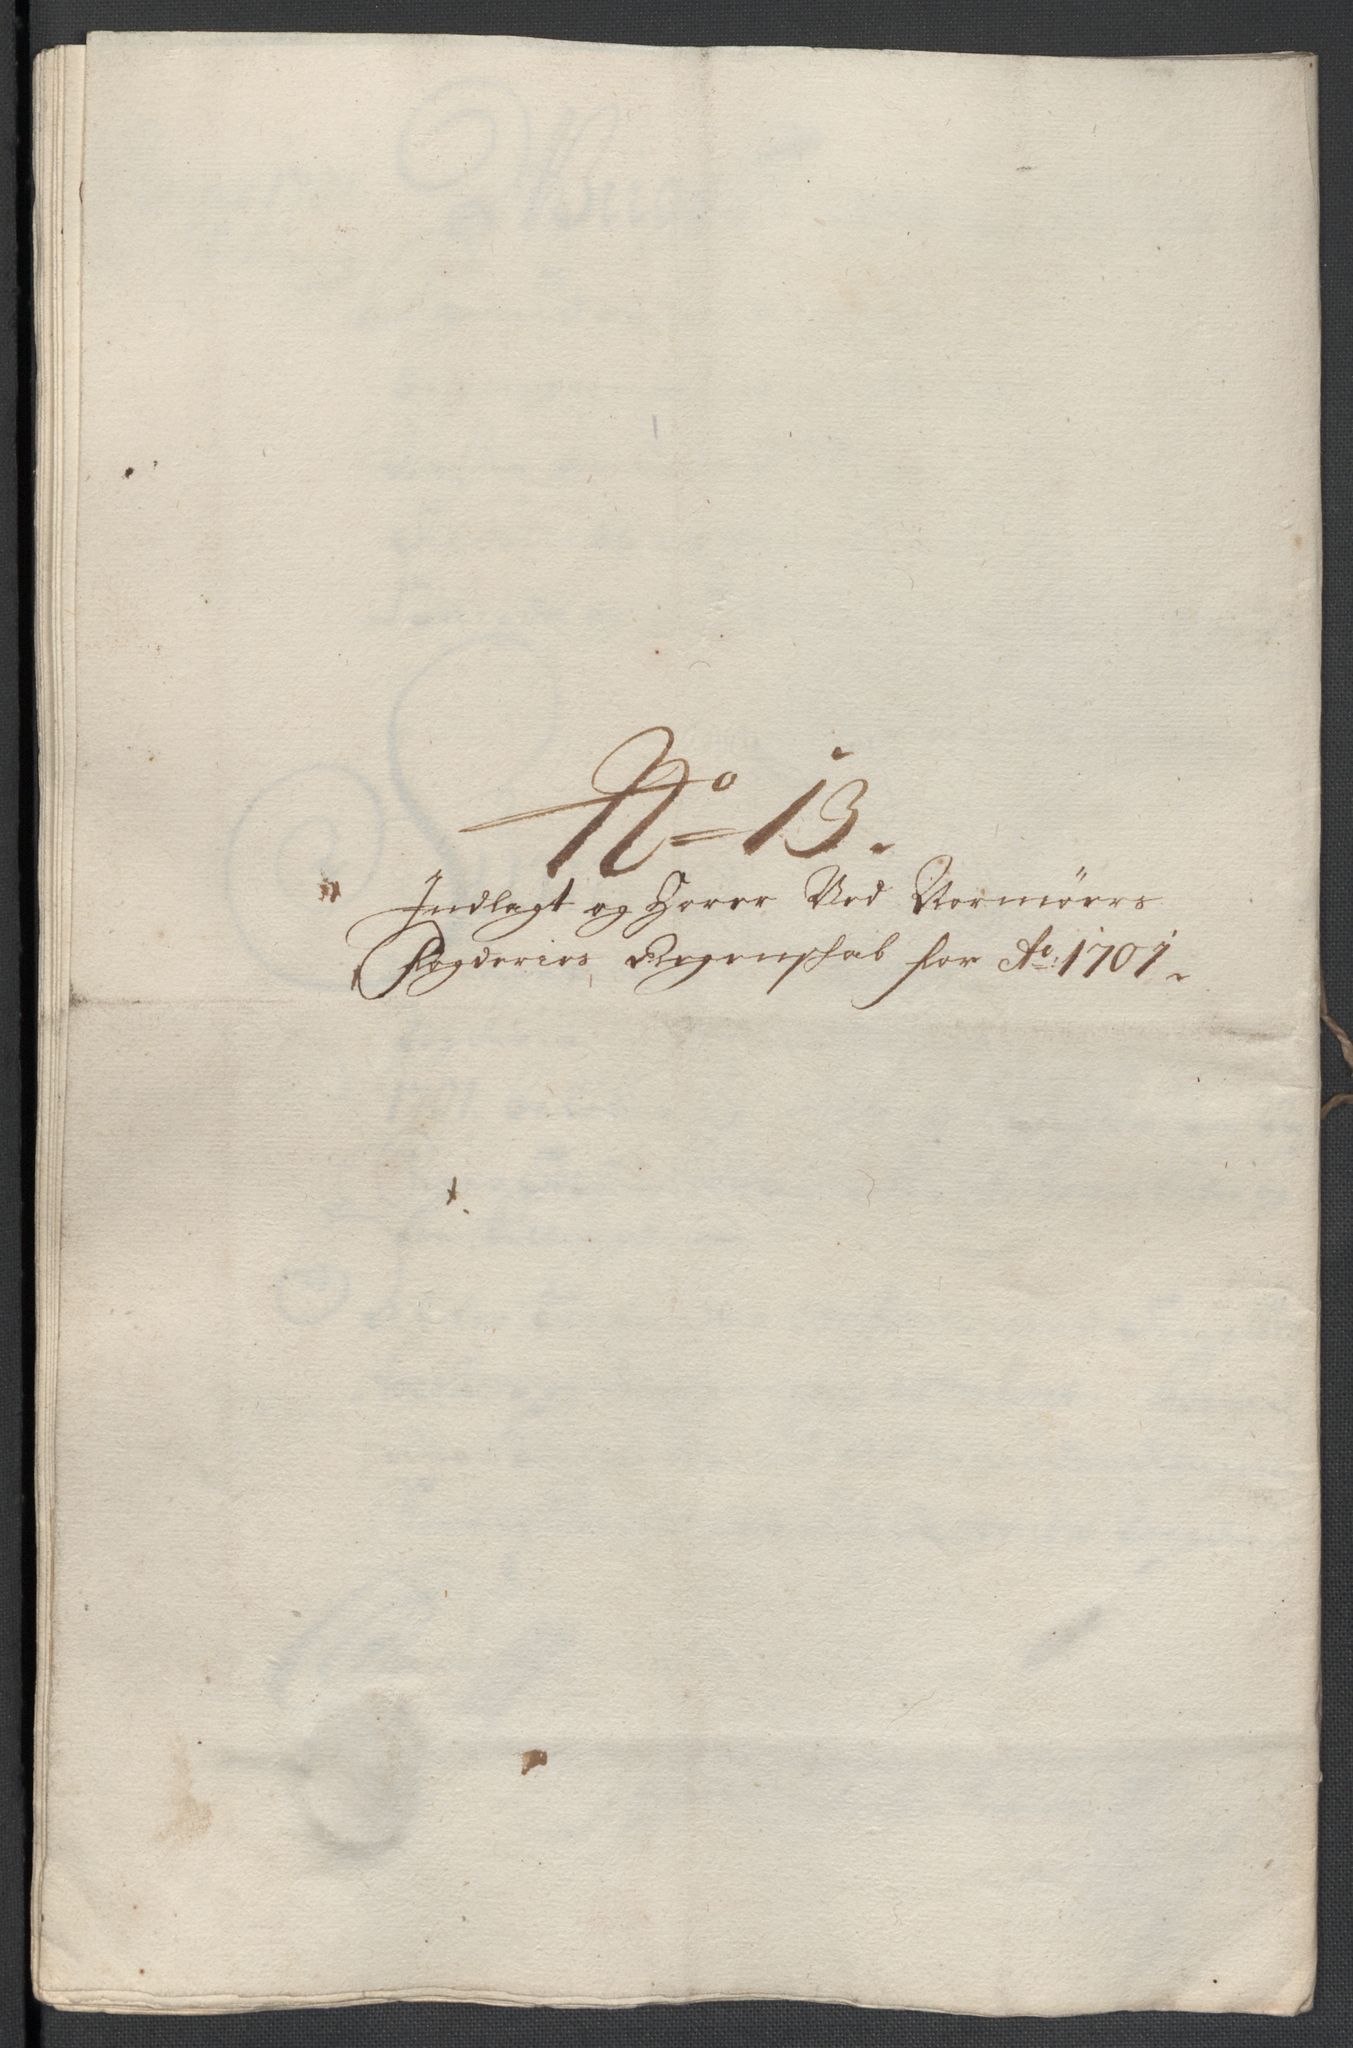 No 13.
Indlagt og Hører Ved Normøers
Fogderies Regenschab for Ao: 1701.